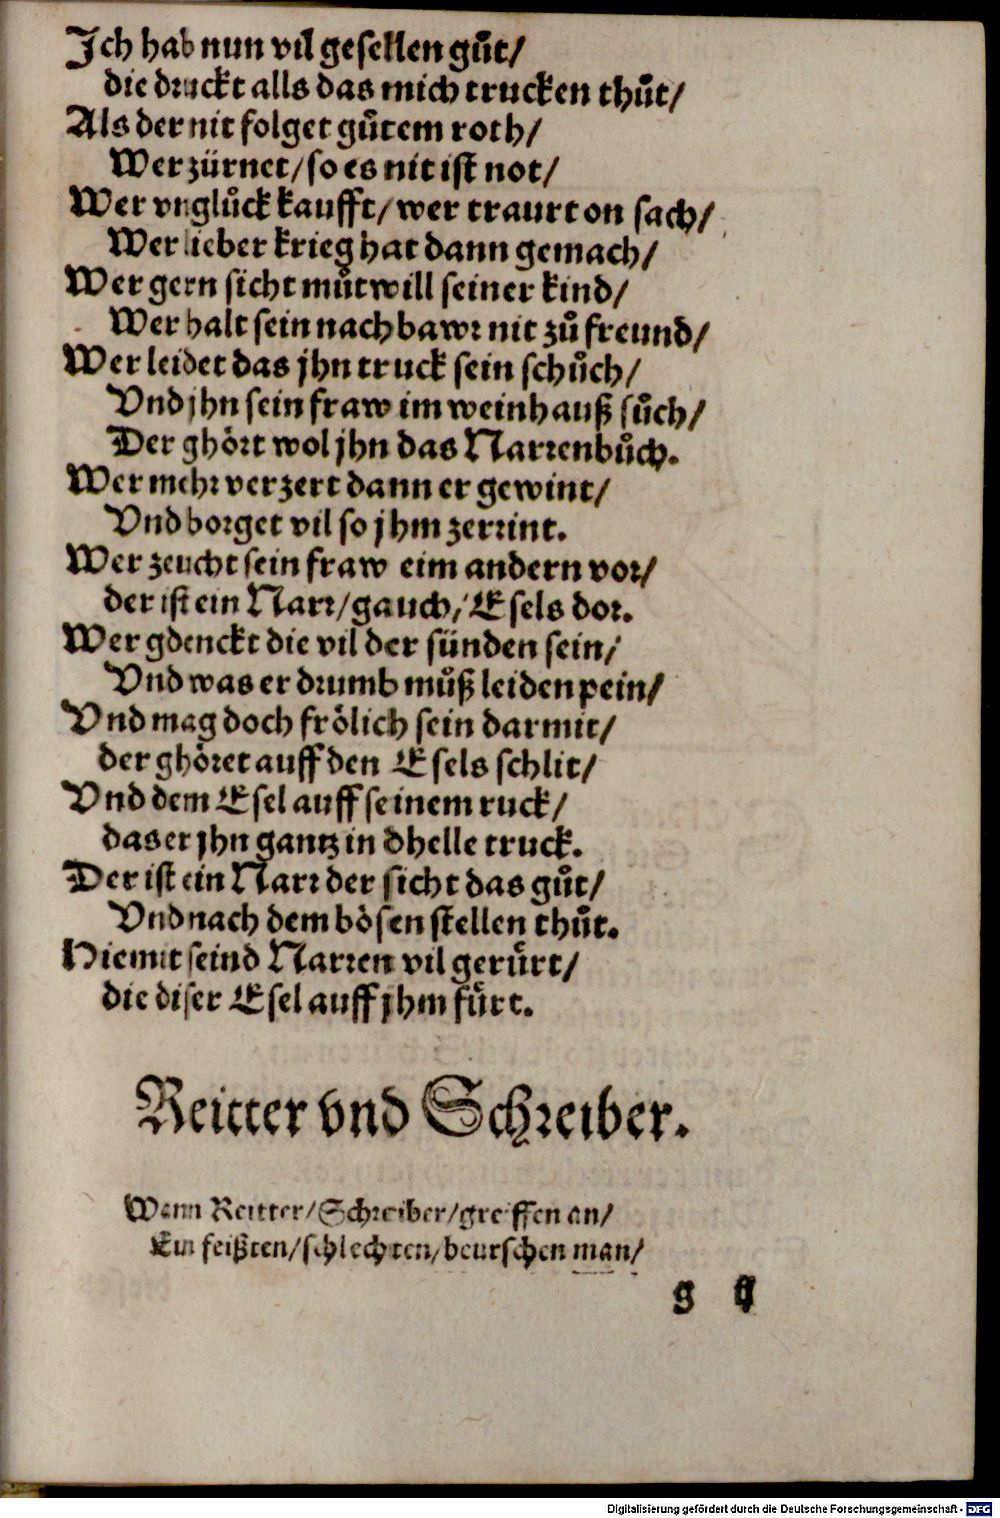 Ich hab nun vil gesellen gůt/
die druckt alls das mich trucken thůt/
Als der nit folget gůtem roth/
Wer zürnet/so es nit ist not/
Wer vnglůck kaufft/wer traurt on sach/
Wer lieber krieg hat dann gemach/
Wer gern sicht můtwill seiner kind/
Wer halt sein nachbawr nit zů freund/
Wer leidet das jhn truck sein schůch/
Vnd jhn sein fraw im weinhauß sůch/
Der ghört wol jhn das Narrenbůch.
Wer mehr verzert dann er gewint/
Vnd borget vil so jhm zerrint.
Wer zeucht sein fraw eim andern vor/
der ist ein Narr/gauch/Esels dor.
Wer gdenckt die vil der sünden sein/
Vnd was er drumb můß leiden pein/
Vnd mag doch frölich sein darmit/
der ghöret auff den Esels schlit/
Vnd dem Esel auff seinem ruck/
das er jhn gantz in dhelle truck.
Der ist ein Narr der sicht das gůt/
Vnd nach dem bösen stellen thůt.
Hiemit seind Narren vil gerůrt/
die diser Esel auff jhm fůrt.
Reitter vnd Schreiber.
Wann Reitter/Schreiber/greiffen an/
Ein feißten/schlechten/beurschen man/
g ij
Digitalisierung gefördert durch die Deutsche Forschungsgemeinschaft - DFG